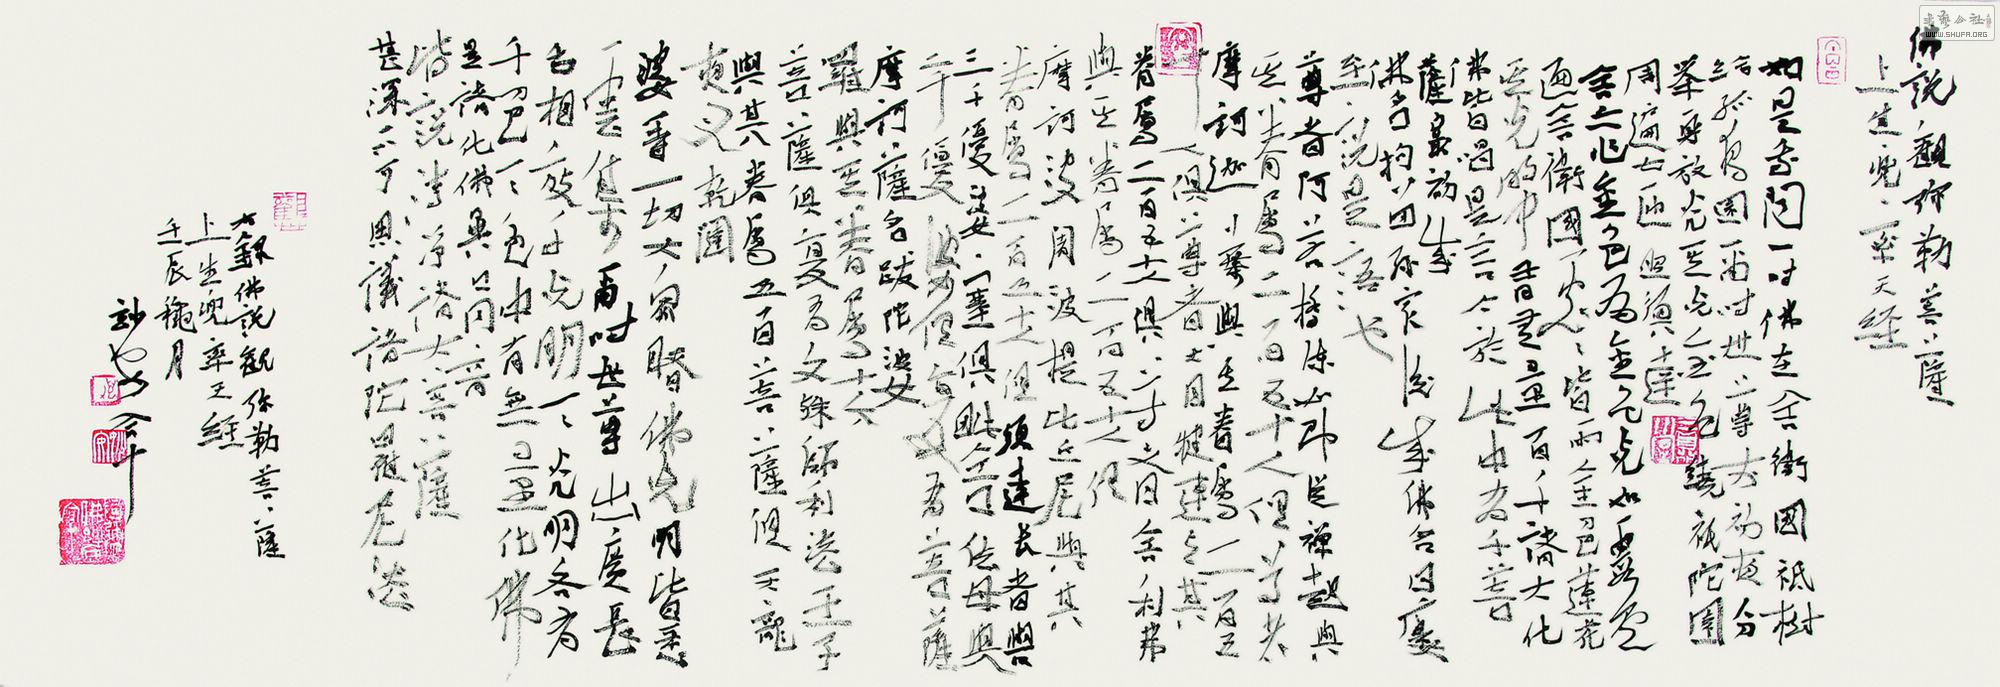 佛說觀弥勒菩薩
上生兜率天經
如是我闻一时佛在舍衛國祇樹
给孤独園爾时世尊於初夜分
举身放光其光金色繞祇陀園
周遍七匝照須達
舍亦作金色有金色光如段雲
遍舍衛國處處皆雨金色蓮花
其光明中有无量百千諸大化
佛皆唱是言今於此中有千菩
薩最初成
佛名拘留孫最後成佛名曰樓
至說是語已
尊者阿若憍陈如即從禪起與
其眷属二百五十人俱尊者
摩訶迦葉與其眷属二百五
十人俱尊者大目犍連與其
眷属二百五十人俱尊者舍利弗
與其眷属二百五十人俱
摩訶波闍波提比丘尼與其
眷属千比丘尼俱須達長者與
三千優婆塞俱毗舍佉母與
二千優婆夷俱復有菩薩
摩訶薩名跋陀婆
羅與其眷属十六
菩薩俱文殊師利法王子
與其眷属五百菩薩俱天龍
夜叉乾闥
婆等一切大眾睹佛光明皆悉
雲集爾时世尊出廣長
舌相放千光明一一光明各有
千色一一色中有無量化佛
是諸化佛異口同音
皆說清淨諸大菩薩
甚深不可思議諸陀羅尼法
右錄佛說觀弥勒菩薩
上生兜率天經
壬辰穐月